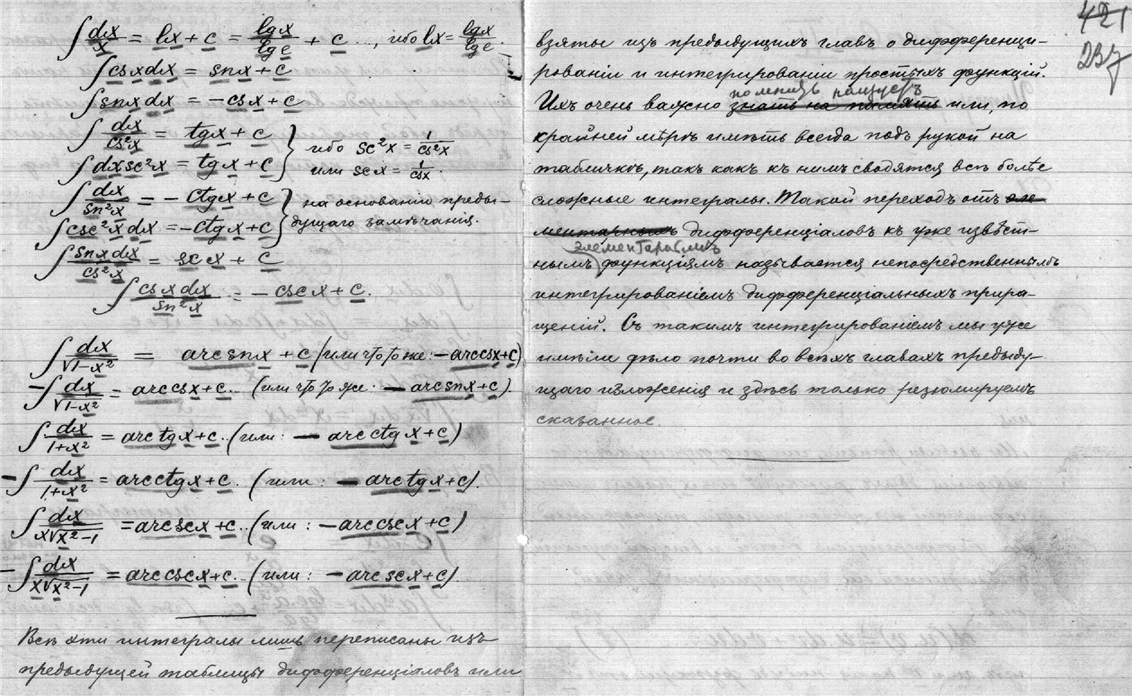 ∫ dx/x = lx + c = lgx/lge + c ..., ибо lx = lgx/lge.
∫ csx dx = snx + c
∫ snx dx = − csx + c
∫ dx/cs²x = tgx + c
∫ dx sc²x = tgx + c
ибо sc²x = 1/cs²x
или scx = 1/csx.
∫ dx/sn²x = − ctgx + c
∫ csc²x dx = − ctgx + c
на основаніи преды-
дущаго замѣчанія.
∫ snx dx/cs²x = scx + c
∫ csx dx/sn²x = − cscx + c.
∫ dx/√1−x² = arcsnx + c (или что то же: − arccsx + c)
− ∫ dx/√1−x² = arccsx + c. (или что то же: − arcsnx + c)
∫ dx/1+x² = arctgx + c. (или: − arcctgx + c)
− ∫ dx/1+x² = arcctgx + c. (или: − arctgx + c).
∫ dx/x√x²−1 = arcscx + c. (или: − arccscx + c)
− ∫ dx/x√x²−1 = arccscx + c. (или: − arcscx + c)
Всѣ эти интегралы лишь переписаны изъ
предыдущей таблицы дифференціаловъ или
421
237
взяты изъ предыдущихъ главъ о дифференци-
рованіи и интегрировании простыхъ функцій.
помнить наизусть
Ихъ очень важно знать на память или, по
крайней мѣрѣ имѣть всегда подъ рукой на
табличкѣ, такъ какъ къ нимъ сводятся всѣ болѣе
сложные интегралы. Такой переходъ отъ эле
ментарныхъ дифференціаловъ къ уже извѣст-
элементарнымъ
нымъ функціямъ называется непосредственнымъ
интегрированіемъ дифференціальныхъ прира-
щеній. Съ такимъ интегрированіемъ мы уже
имѣли дѣло почти во всѣхъ главахъ предыду-
щаго изложенія и здѣсь только резюмируемъ
сказанное.